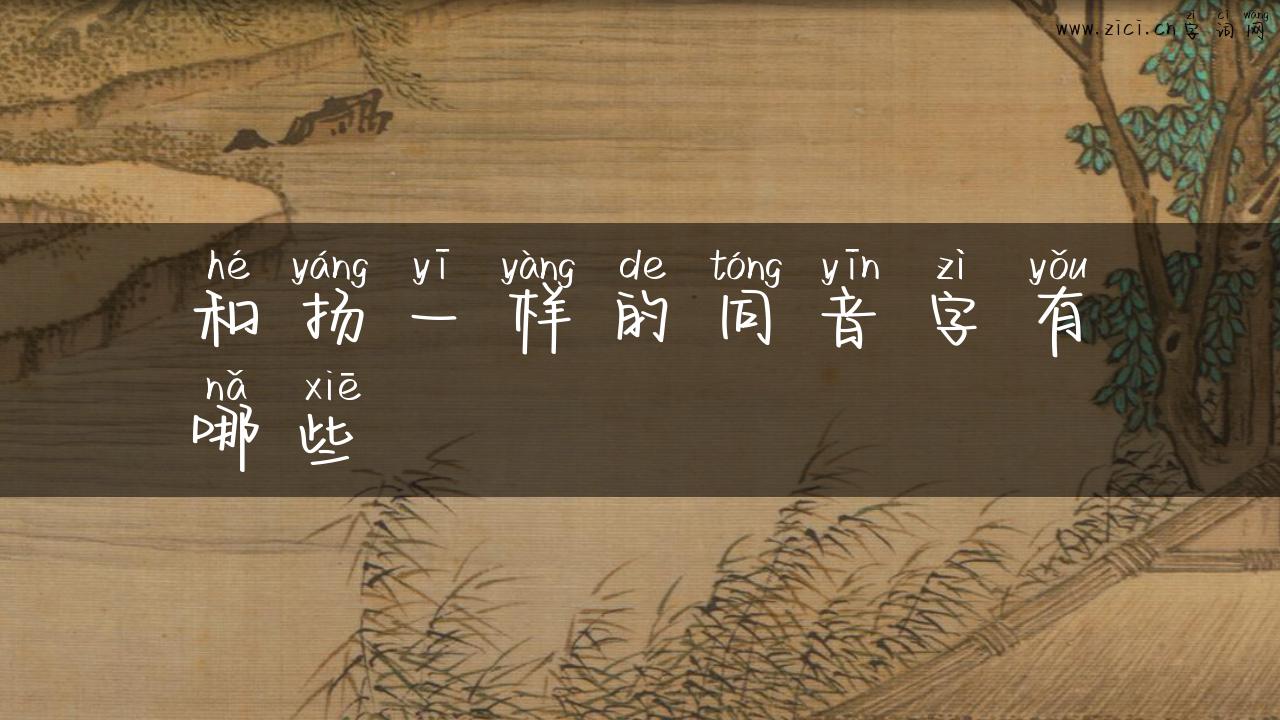 zì cí wǎng
www.zici.cn字词网
hé yáng yī yàng de tóng yīn zì yǒu
和扬一样的同音字有
nǎ xiē
哪些